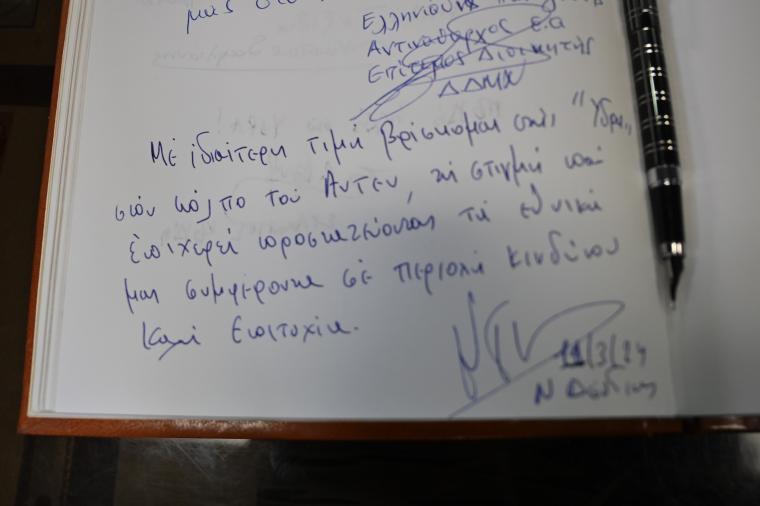 μας
Ελληνικής
Αντιναύαρχος ε.α
Επίτιμος Διοικητής
ΔΔΜΝ
Με ιδιαίτερη τιμή βρίσκομαι στην "Ύδρα"
στον κόλπο του Άντεν, τη στιγμή που
επιχειρεί προστατεύοντας τα εθνικά
μας συμφέροντα σε περιοχή κινδύνου
Καλή Επιτυχία.
11/3/24
Ν Δένδιας